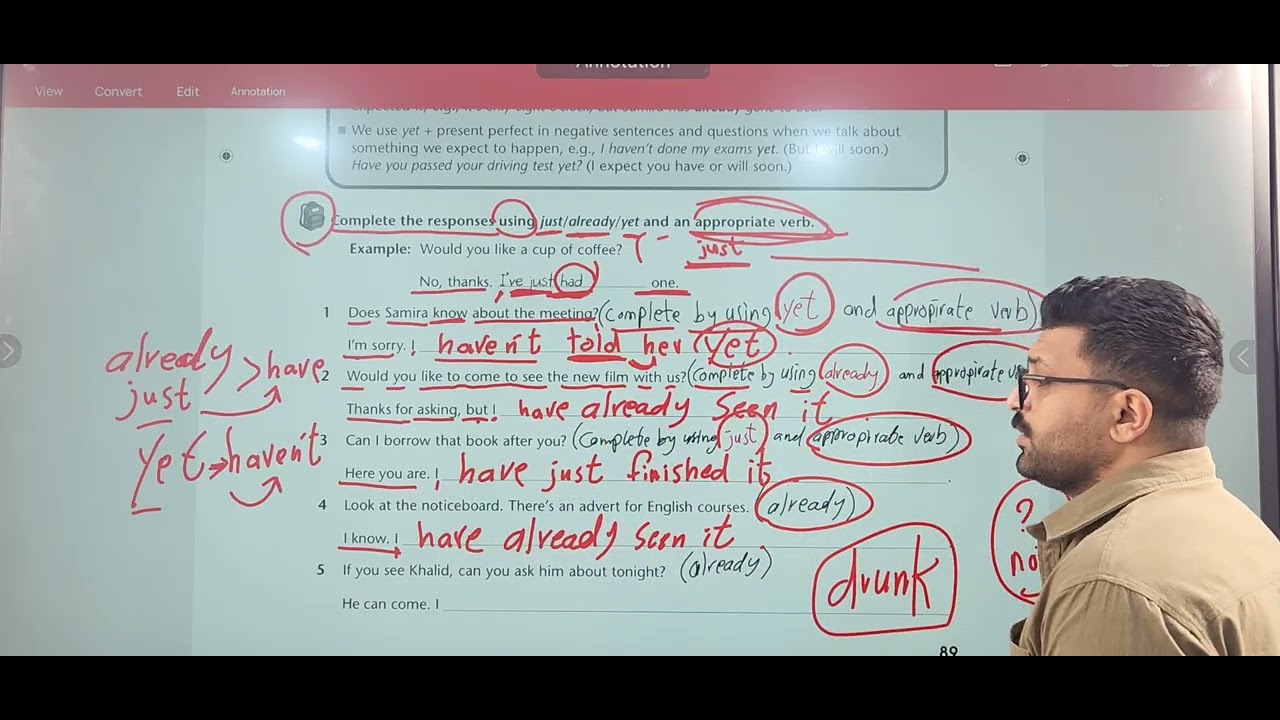 Annotation
View Convert Edit Annotation
■ We use yet + present perfect in negative sentences and questions when we talk about
something we expect to happen, e.g., I haven't done my exams yet. (But I will soon.)
Have you passed your driving test yet? (I expect you have or will soon.)
Complete the responses using just/already/yet and an appropriate verb.
Example: Would you like a cup of coffee? just
No, thanks. I've just had one.
1 Does Samira know about the meeting? (Complete by using yet and appropirate verb)
I'm sorry. I haven't told her yet.
already > have
just
yet → haven't
2 Would you like to come to see the new film with us? (Complete by using already and appropirate
Thanks for asking, but I have already seen it
3 Can I borrow that book after you? (Complete by using just and appropirabe verb)
Here you are. I have just finished it.
4 Look at the noticeboard. There's an advert for English courses. (already)
I know. I have already seen it.
5 If you see Khalid, can you ask him about tonight? (already)
He can come. I
drunk
?
no
89